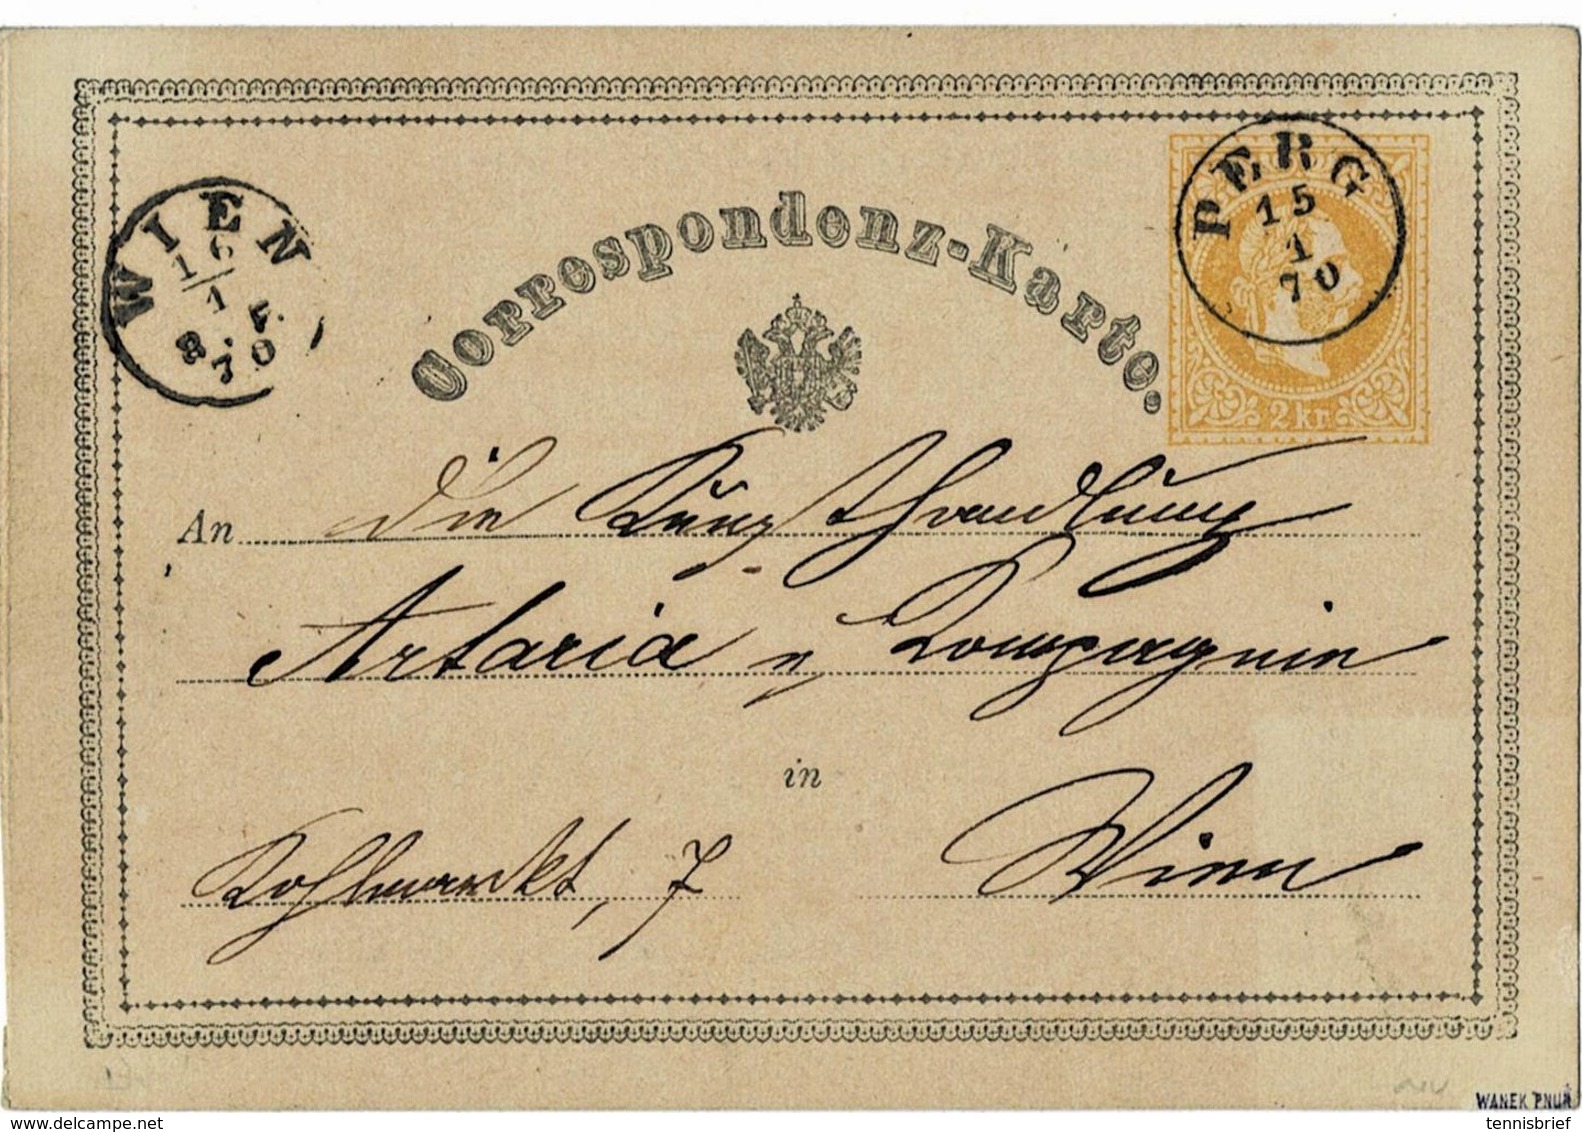 Correspondenz-Karte.
WIEN
16
1
8. F.
70
PERG
15
1
70
2 kr
An die Kunsthandlung
Artaria & Compagnie
in
Kohlmarkt, 7 Wien
WANEK PNUŘ
delcampe.net
tennisbrief